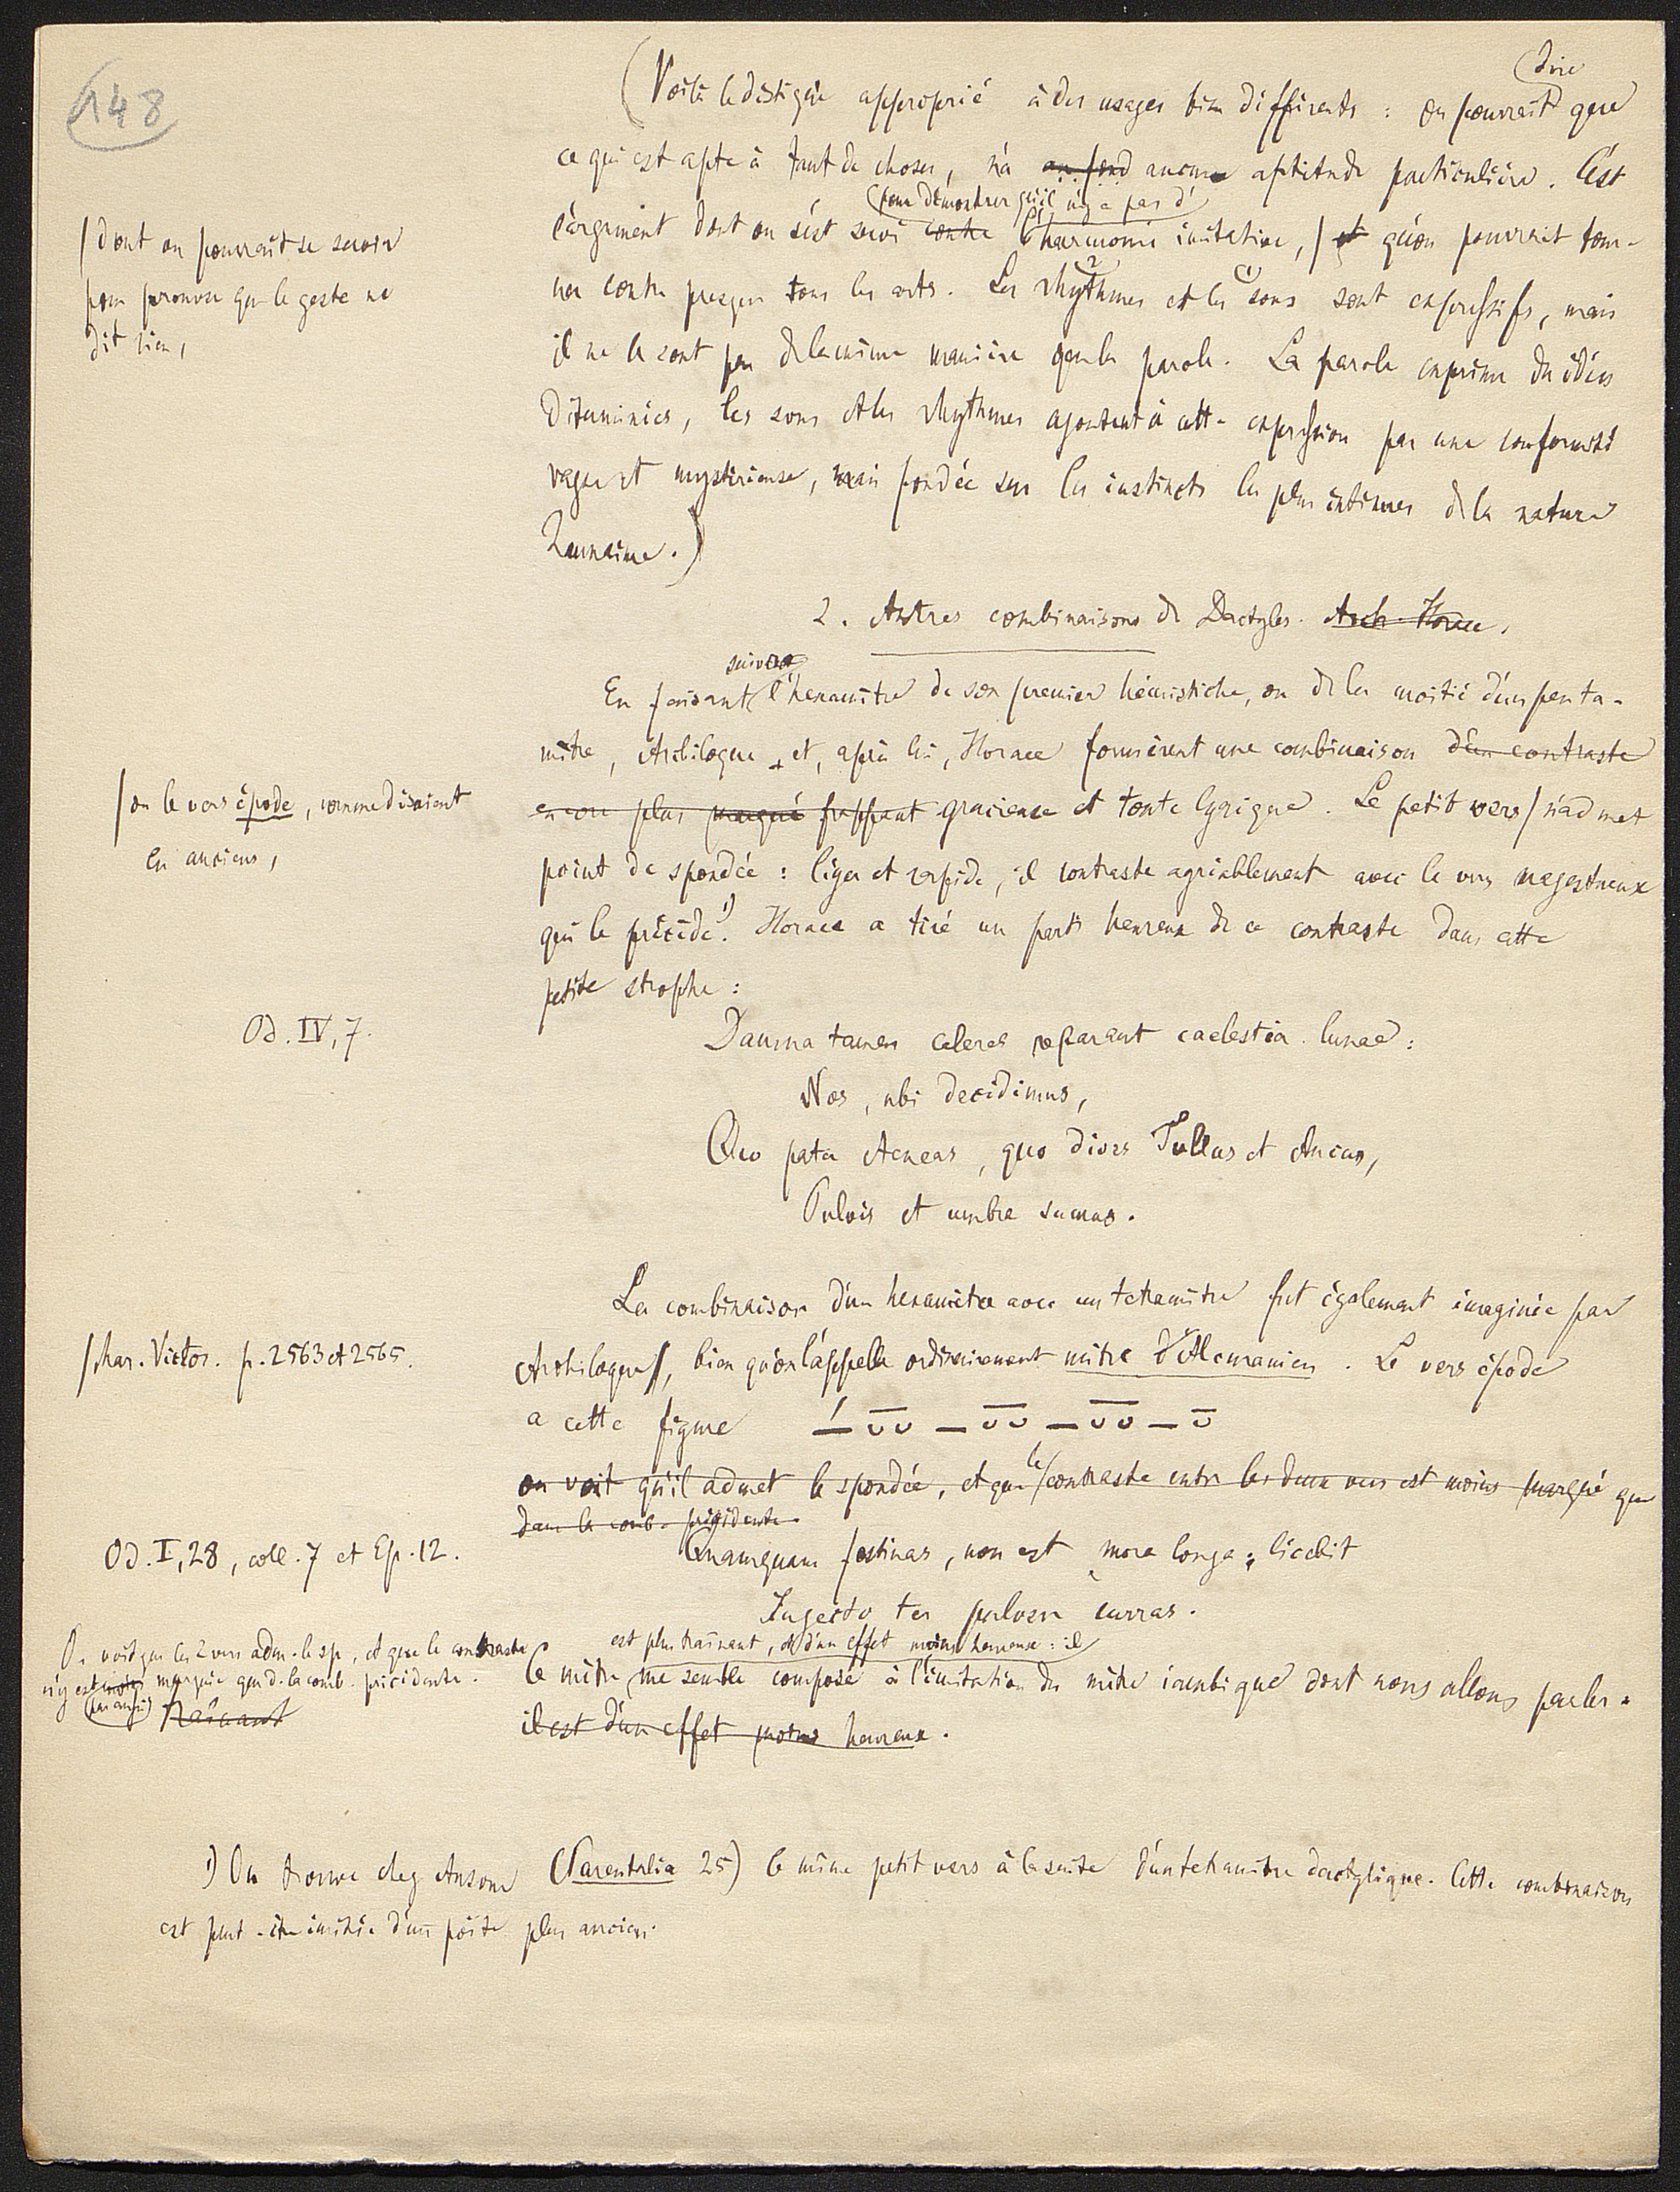 148
(Voilà le distique approprié à des usages bien différents : on pourrait dire que
ce qui est apte à tant de choses, n'a au fond aucune aptitude particulière. C'est
pour démontrer qu'il n'y a pas d'
l'argument dont on s'est servi contre l'harmonie imitative, / et qu'on pourrait tour-
/ dont on pourrait se servir
pour prouver que le geste ne
dit rien,
ner contre presque tous les arts. Les rhythmes et les sons sont expressifs, mais
il ne le sont pas de la même manière que la parole. La parole exprime des idées
déterminées, les sons et les rhythmes ajoutent à cette expression par une conformité
vague et mystérieuse, mais fondée sur les instincts les plus intimes de la nature
humaine.)
2. Autres combinaisons de Dactyles. Arch. Horace.
suivre
En faisant l'hexamètre de son premier hémistiche, ou de la moitié d'un penta-
mètre, Archiloque et, après lui, Horace formèrent une combinaison d'un contraste
encore plus marqué frappant gracieuse et toute lyrique. Le petit vers / n'admet
/ ou le vers épode, comme disaient
les anciens,
point de spondée : léger et rapide, il contraste agréablement avec le vers majestueux
qui le précède 1). Horace a tiré un parti heureux de ce contraste dans cette
petite strophe :
Od. IV, 7.
Damna tamen celeres reparant caelestia lunae :
Nos, ubi decidimus,
Quo pater Aeneas, quo dives Tullus et Ancus,
Pulvis et umbra sumus.
La combinaison d'un hexamètre avec un tétramètre fut également imaginée par
/ Mar. Victor. p. 2563 et 2565.
Archiloque /, bien qu'on l'appelle ordinairement mètre d'Alcmanien. Le vers épode
a cette figure –́ ⏕ – ⏕ – ⏕ – ⏓
on voit qu'il admet le spondée, et que le contraste entre les deux vers est moins marqué que
dans la comb. précédente
Od. I, 28, coll. 7 et Ep. 12.
Quamquam festinas, non est mora longa ; licebit
Injecto ter pulvere curras.
On voit que les 2 vers adm. le sp., et que le contraste
n'y est moins marqué que d. la comb. précédente.
pas aussi
traînant
est plus traînant, et d'un effet moins heureux : il
Ce mètre me semble composé à l'imitation du mètre iambique dont nous allons parler.
il est d'un effet moins heureux.
1) On trouve chez Ausone (Parentalia 25) le même petit vers à la suite d'un tétramètre dactylique. Cette combinaison
est peut-être imitée d'un poëte plus ancien.